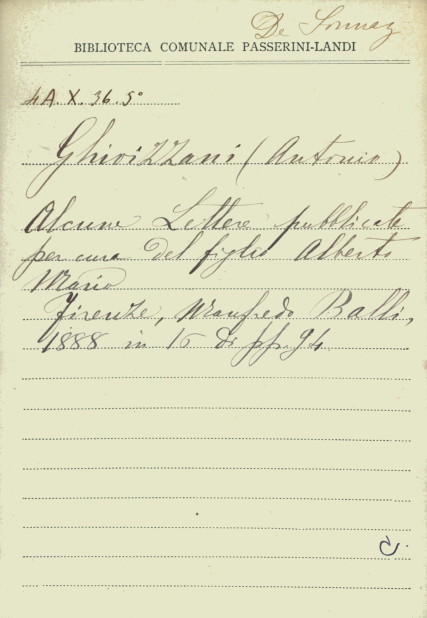 De Sonnaz
BIBLIOTECA COMUNALE PASSERINI-LANDI
4A.X.36.5°
Ghivizzani (Antonio)
Alcune Lettere pubblicate
per cura del figlio Alberto
Mario
Firenze, Manfredo Balli,
1888 in 16 di pp. 94